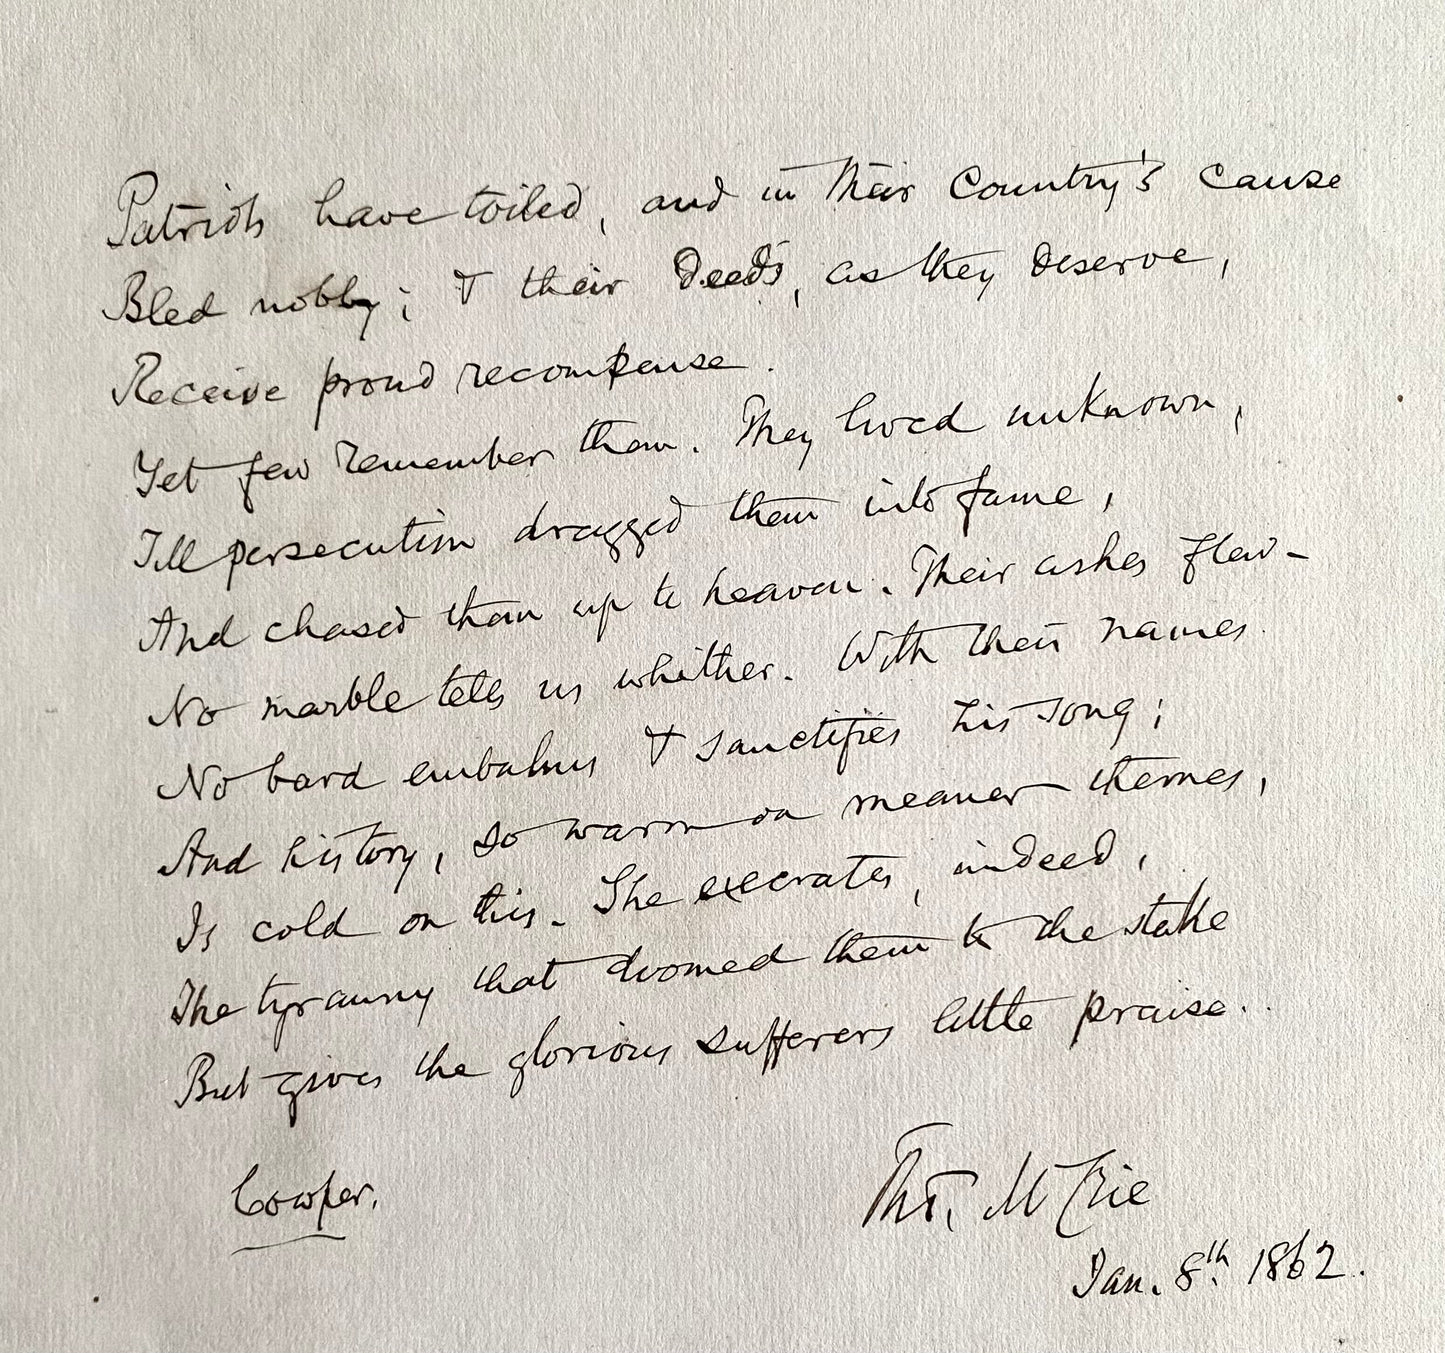 Patriots have toiled, and in their Country's cause
Bled nobly; & their Deeds, as they deserve,
Receive proud recompense.
Yet few remember them. They lived unknown,
Till persecution dragged them into fame,
And chased them up to heaven. Their ashes flew-
No marble tells us whither. With their names
No bard embalms & sanctifies his song;
And history, so warm on meaner themes,
Is cold on this. She execrates, indeed,
The tyranny that doomed them to the stake
But gives the glorious sufferers little praise..
Cowper.
Thos. McCrie
Jan. 8th. 1862.